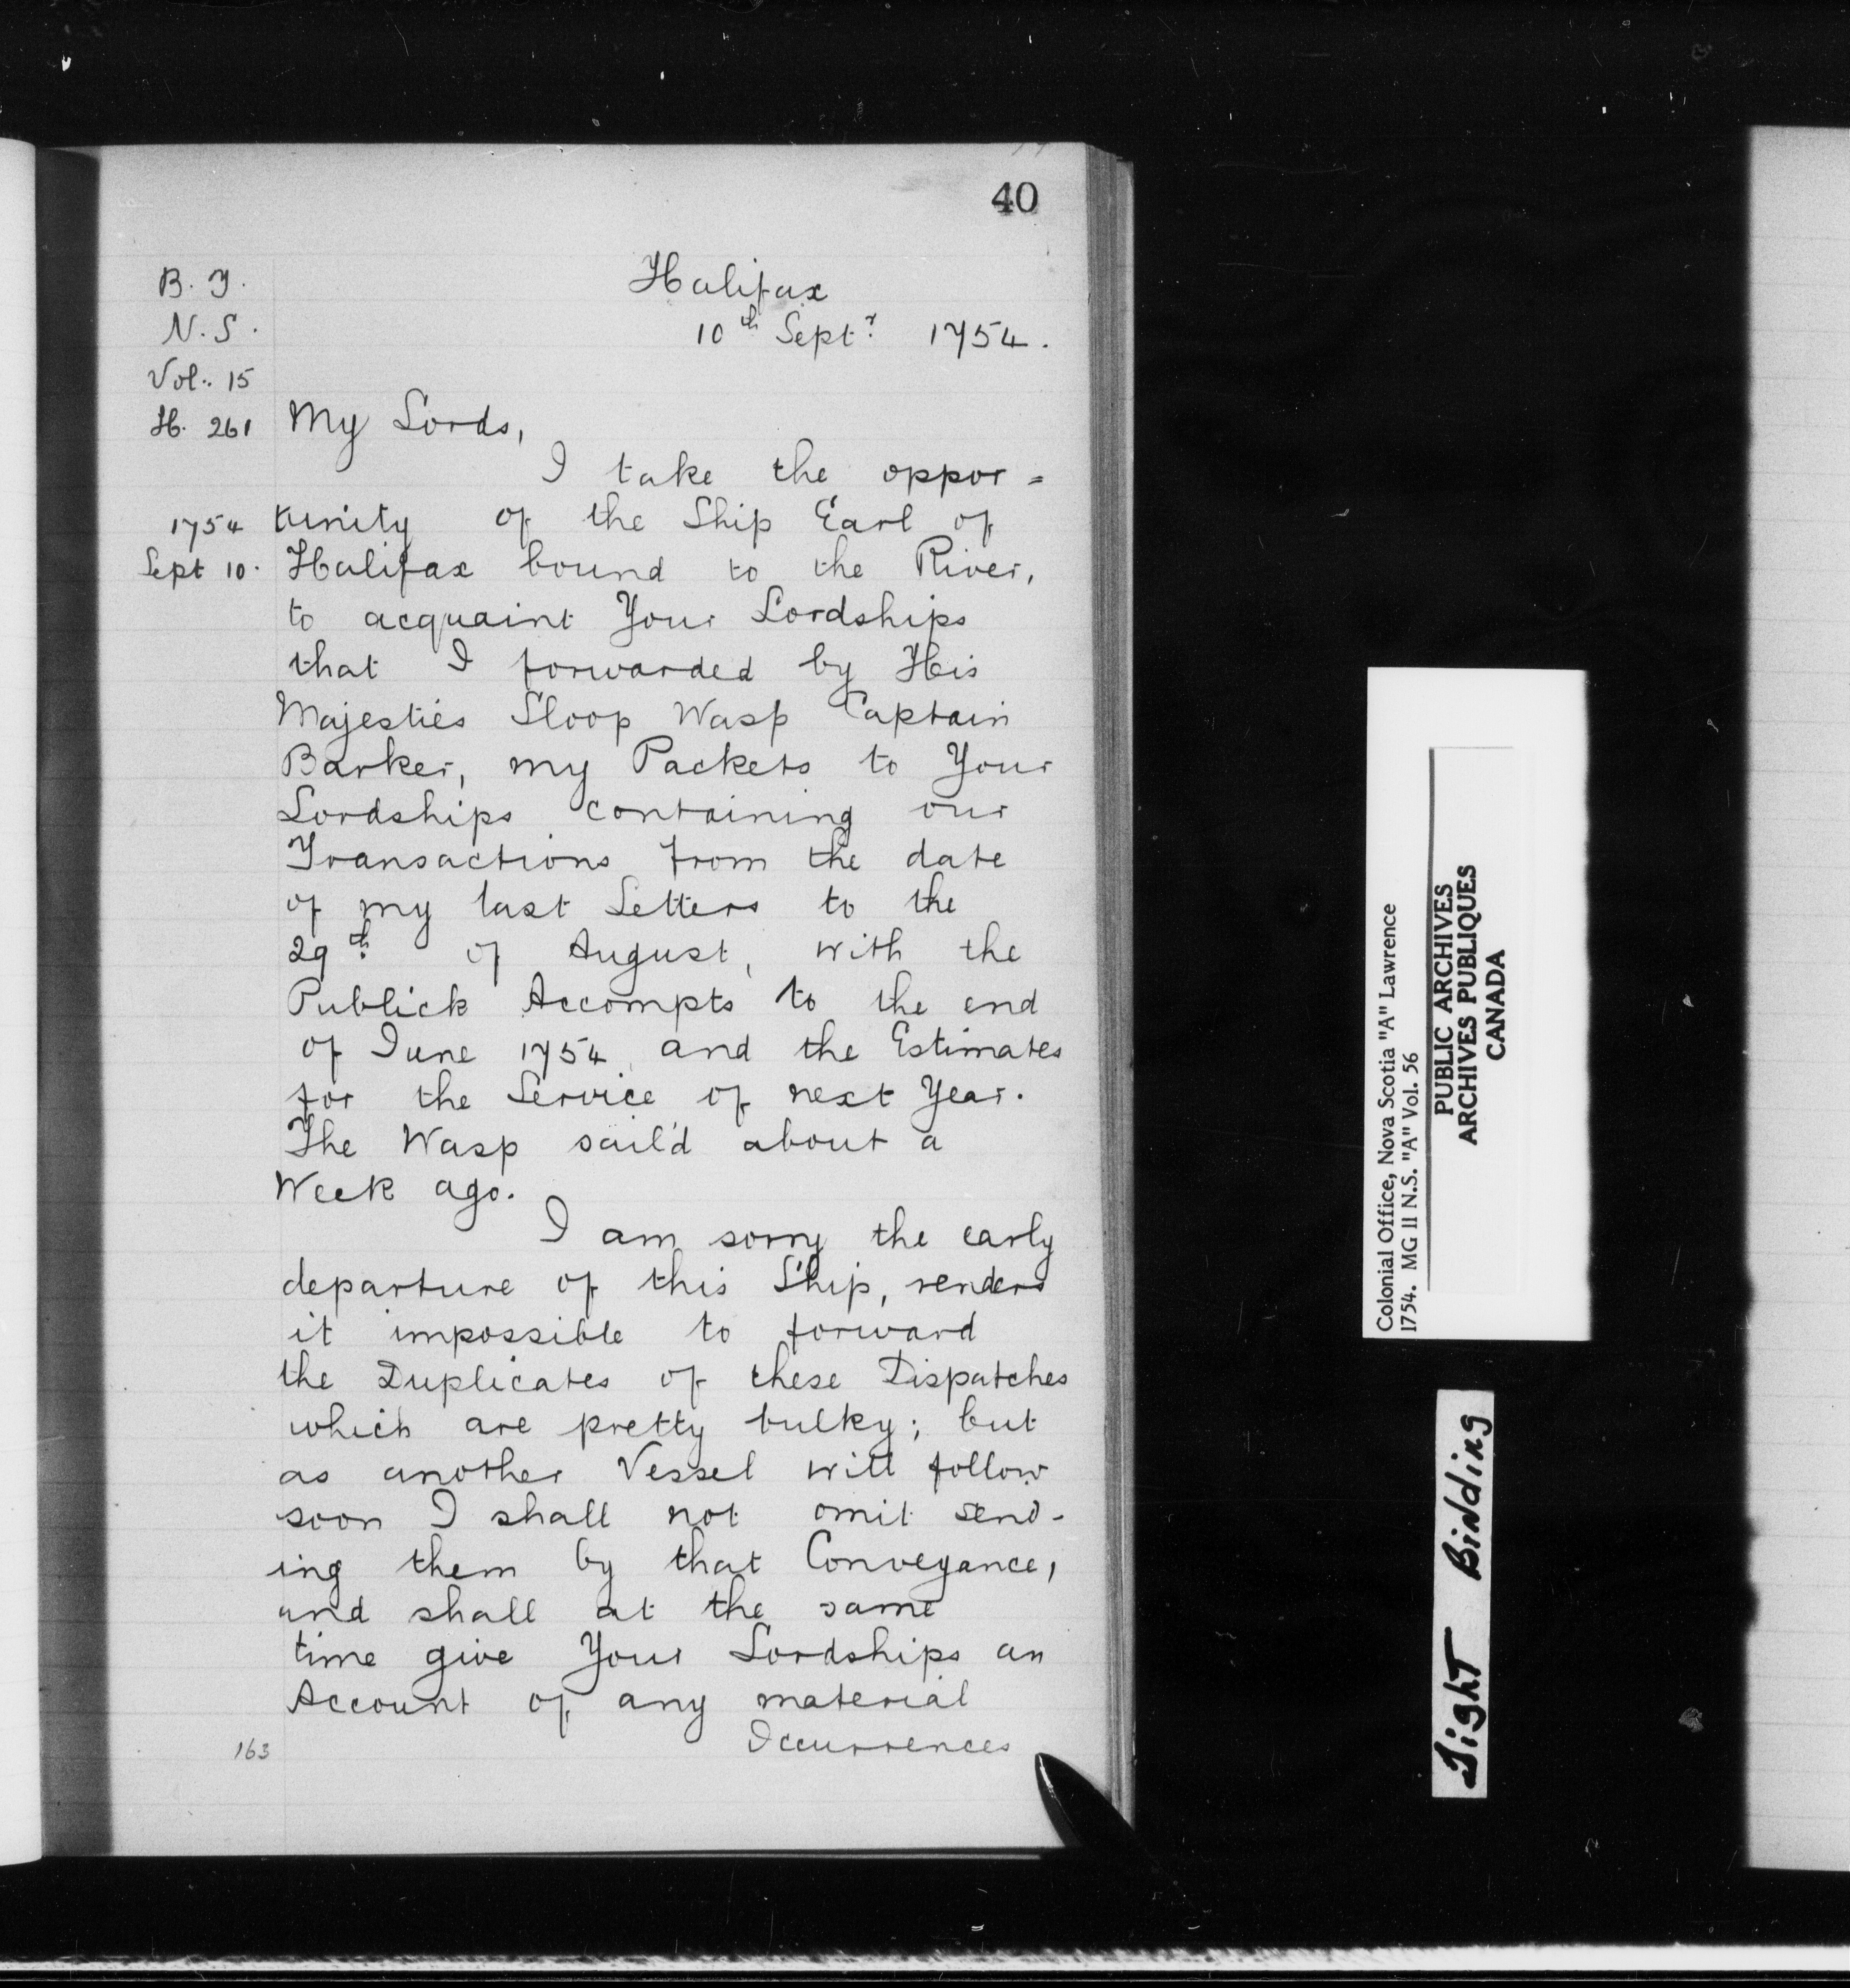 40
B. T.
N. S.
Vol. 15
H. 261
1754
Sept 10.
Halifax
10th Septr 1754.
My Lords,
I take the oppor=
tunity of the Ship Earl of
Halifax bound to the River,
to acquaint Your Lordships
that I forwarded by His
Majesties Sloop Wasp Captain
Barker, my Packets to Your
Lordships containing our
Transactions from the date
of my last Letters to the
29th of August, with the
Publick Accompts to the end
of June 1754 and the Estimates
for the Service of next Year.
The Wasp sail'd about a
Week ago.
I am sorry the early
departure of this Ship, renders
it impossible to forward
the Duplicates of these Dispatches
which are pretty bulky; but
as another Vessel will follow
soon I shall not omit send-
ing them by that Conveyance,
and shall at the same
time give Your Lordships an
Account of any material
Occurrences
163
Colonial Office, Nova Scotia "A" Lawrence
1754. MG 11 N.S. "A" Vol. 56
PUBLIC ARCHIVES
ARCHIVES PUBLIQUES
CANADA
Tight Binding